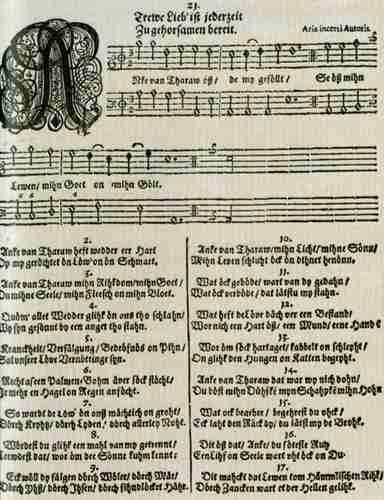 23.
Trewe Lieb' ist jederzeit
Zu gehorsamen bereit.
Aria incerti Autoris.
Anke van Tharaw öß/ de my geföllt/ Se öß mihn
Lewen/ mihn Goet on mihn Gölt.
2.
Anke van Tharaw heft wedder eer Hart
Op my geröchtet ön Löw' on ön Schmart.
3.
Anke van Tharaw mihn Rihkdom/ mihn Goet/
Du mihne Seele/ mihn Fleesch on mihn Bloet.
4.
Quöm' allet Wedder glihk ön ons tho schlahn/
Wy syn gesönnt by een anger tho stahn.
5.
Kranckheit/ Verfälgung/ Bedröfnös on Pihn/
Sal unsrer Löve Vernöttinge syn.
6.
Recht as een Palmen-Bohm äver söck stöcht/
Je mehr en Hagel on Regen anföcht.
7.
So wardt de Löw' ön onß mächtich on groht/
Dörch Kryhtz/ dörch Lyden/ dörch allerley Noht.
8.
Wördest du glihk een mahl van my getrennt/
Leewdest dar/ wor öm dee Sönne kuhm kennt;
9.
Eck wöll dy fälgen dörch Wöler/ dörch Mär/
Dörch Yhß/ dörch Ihsen/ dörch fihndlöcket Hähr.
10.
Anke van Tharaw/ mihn Licht/ mihne Sönn/
Mihn Leven schluht öck ön dihnet henönn.
11.
Wat öck geböde/ wart van dy gedahn/
Wat öck verböde/ dat lätstu my stahn.
12.
Wat heft de Löve däch ver een Bestand/
Wor nich een Hart öß/ een Mund/ eene Hand?
13.
Wor öm söck hartaget/ kabbelt on schleyht/
On glihk den Hungen on Katten begeyht.
14.
Anke van Tharaw dat war wy nich dohn/
Du böst mihn Dühfke myn Schahpke mihn Hohn
15.
Wat öck begehre/ begehrest du ohck/
Eck laht den Röck dy/ du lätst my de Brohk.
16.
Dit öß dat/ Anke/ du söteste Ruh
Een Lihf on Seele wart uht öck on Du.
17.
Dit mahckt dat Lewen tom Hämmlischen Rihk/
Dörch Zancken wart et der Hellen gelihk.